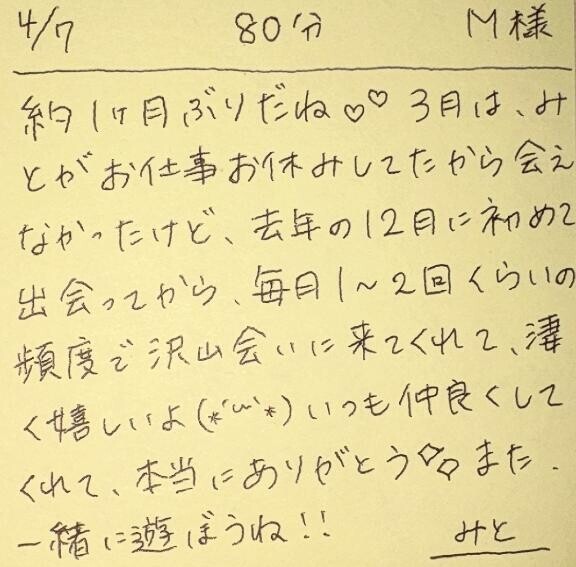 4/7 80分 M様
約1ヶ月ぶりだね♡♡ 3月は、み
とがお仕事お休みしてたから会え
なかったけど、去年の12月に初めて
出会ってから、毎月1〜2回くらいの
頻度で沢山会いに来てくれて、凄
く嬉しいよ(*´ω`*)いつも仲良くして
くれて、本当にありがとう♡♡また、
一緒に遊ぼうね!! みと